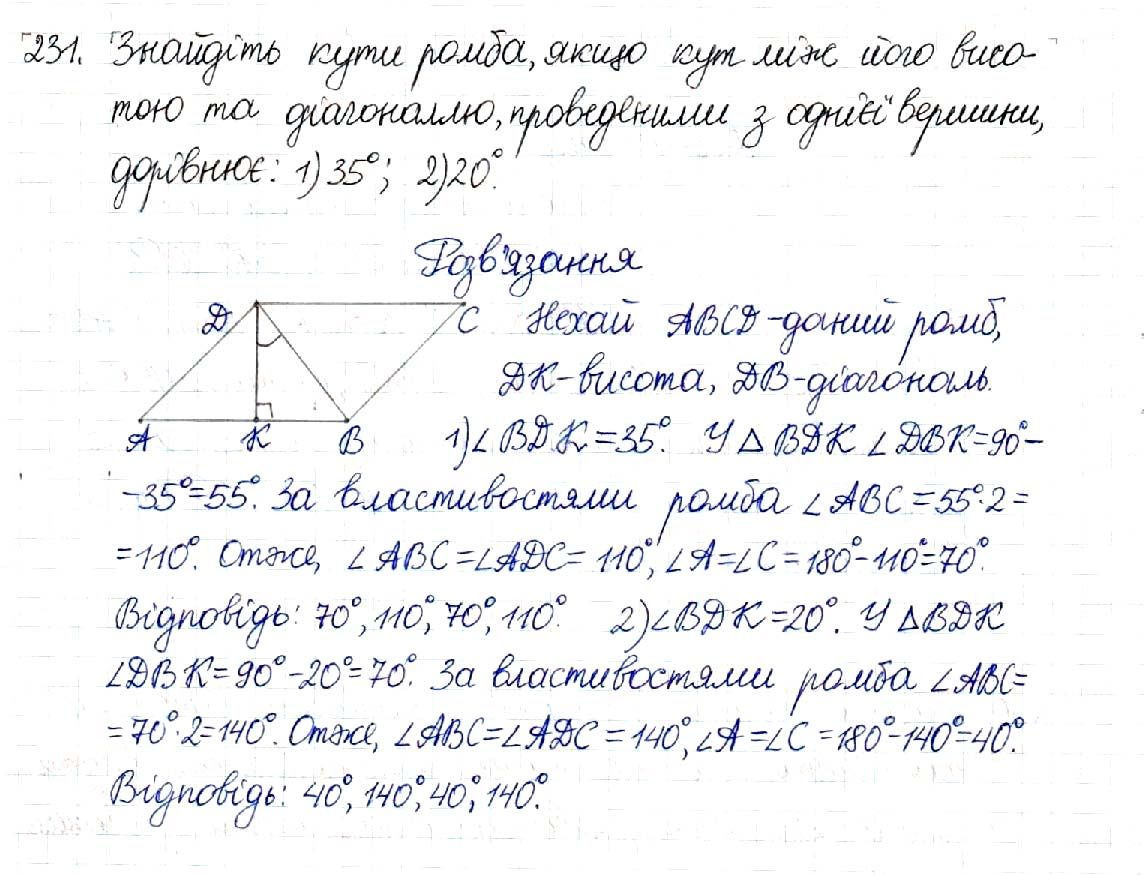 231. Знайдіть кути ромба, якщо кут між його висо-
тою та діагоналлю, проведеними з однієї вершини,
дорівнює: 1) 35°; 2) 20°.
Розв'язання
D C Нехай ABCD - даний ромб,
DK - висота, DB - діагональ.
A K B 1) ∠BDK = 35°. У △BDK ∠DBK = 90° -
- 35° = 55°. За властивостями ромба ∠ABC = 55°·2 =
= 110°. Отже, ∠ABC = ∠ADC = 110°, ∠A = ∠C = 180° - 110° = 70°.
Відповідь: 70°, 110°, 70°, 110°. 2) ∠BDK = 20°. У △BDK
∠DBK = 90° - 20° = 70°. За властивостями ромба ∠ABC =
= 70°·2 = 140°. Отже, ∠ABC = ∠ADC = 140°, ∠A = ∠C = 180° - 140° = 40°.
Відповідь: 40°, 140°, 40°, 140°.